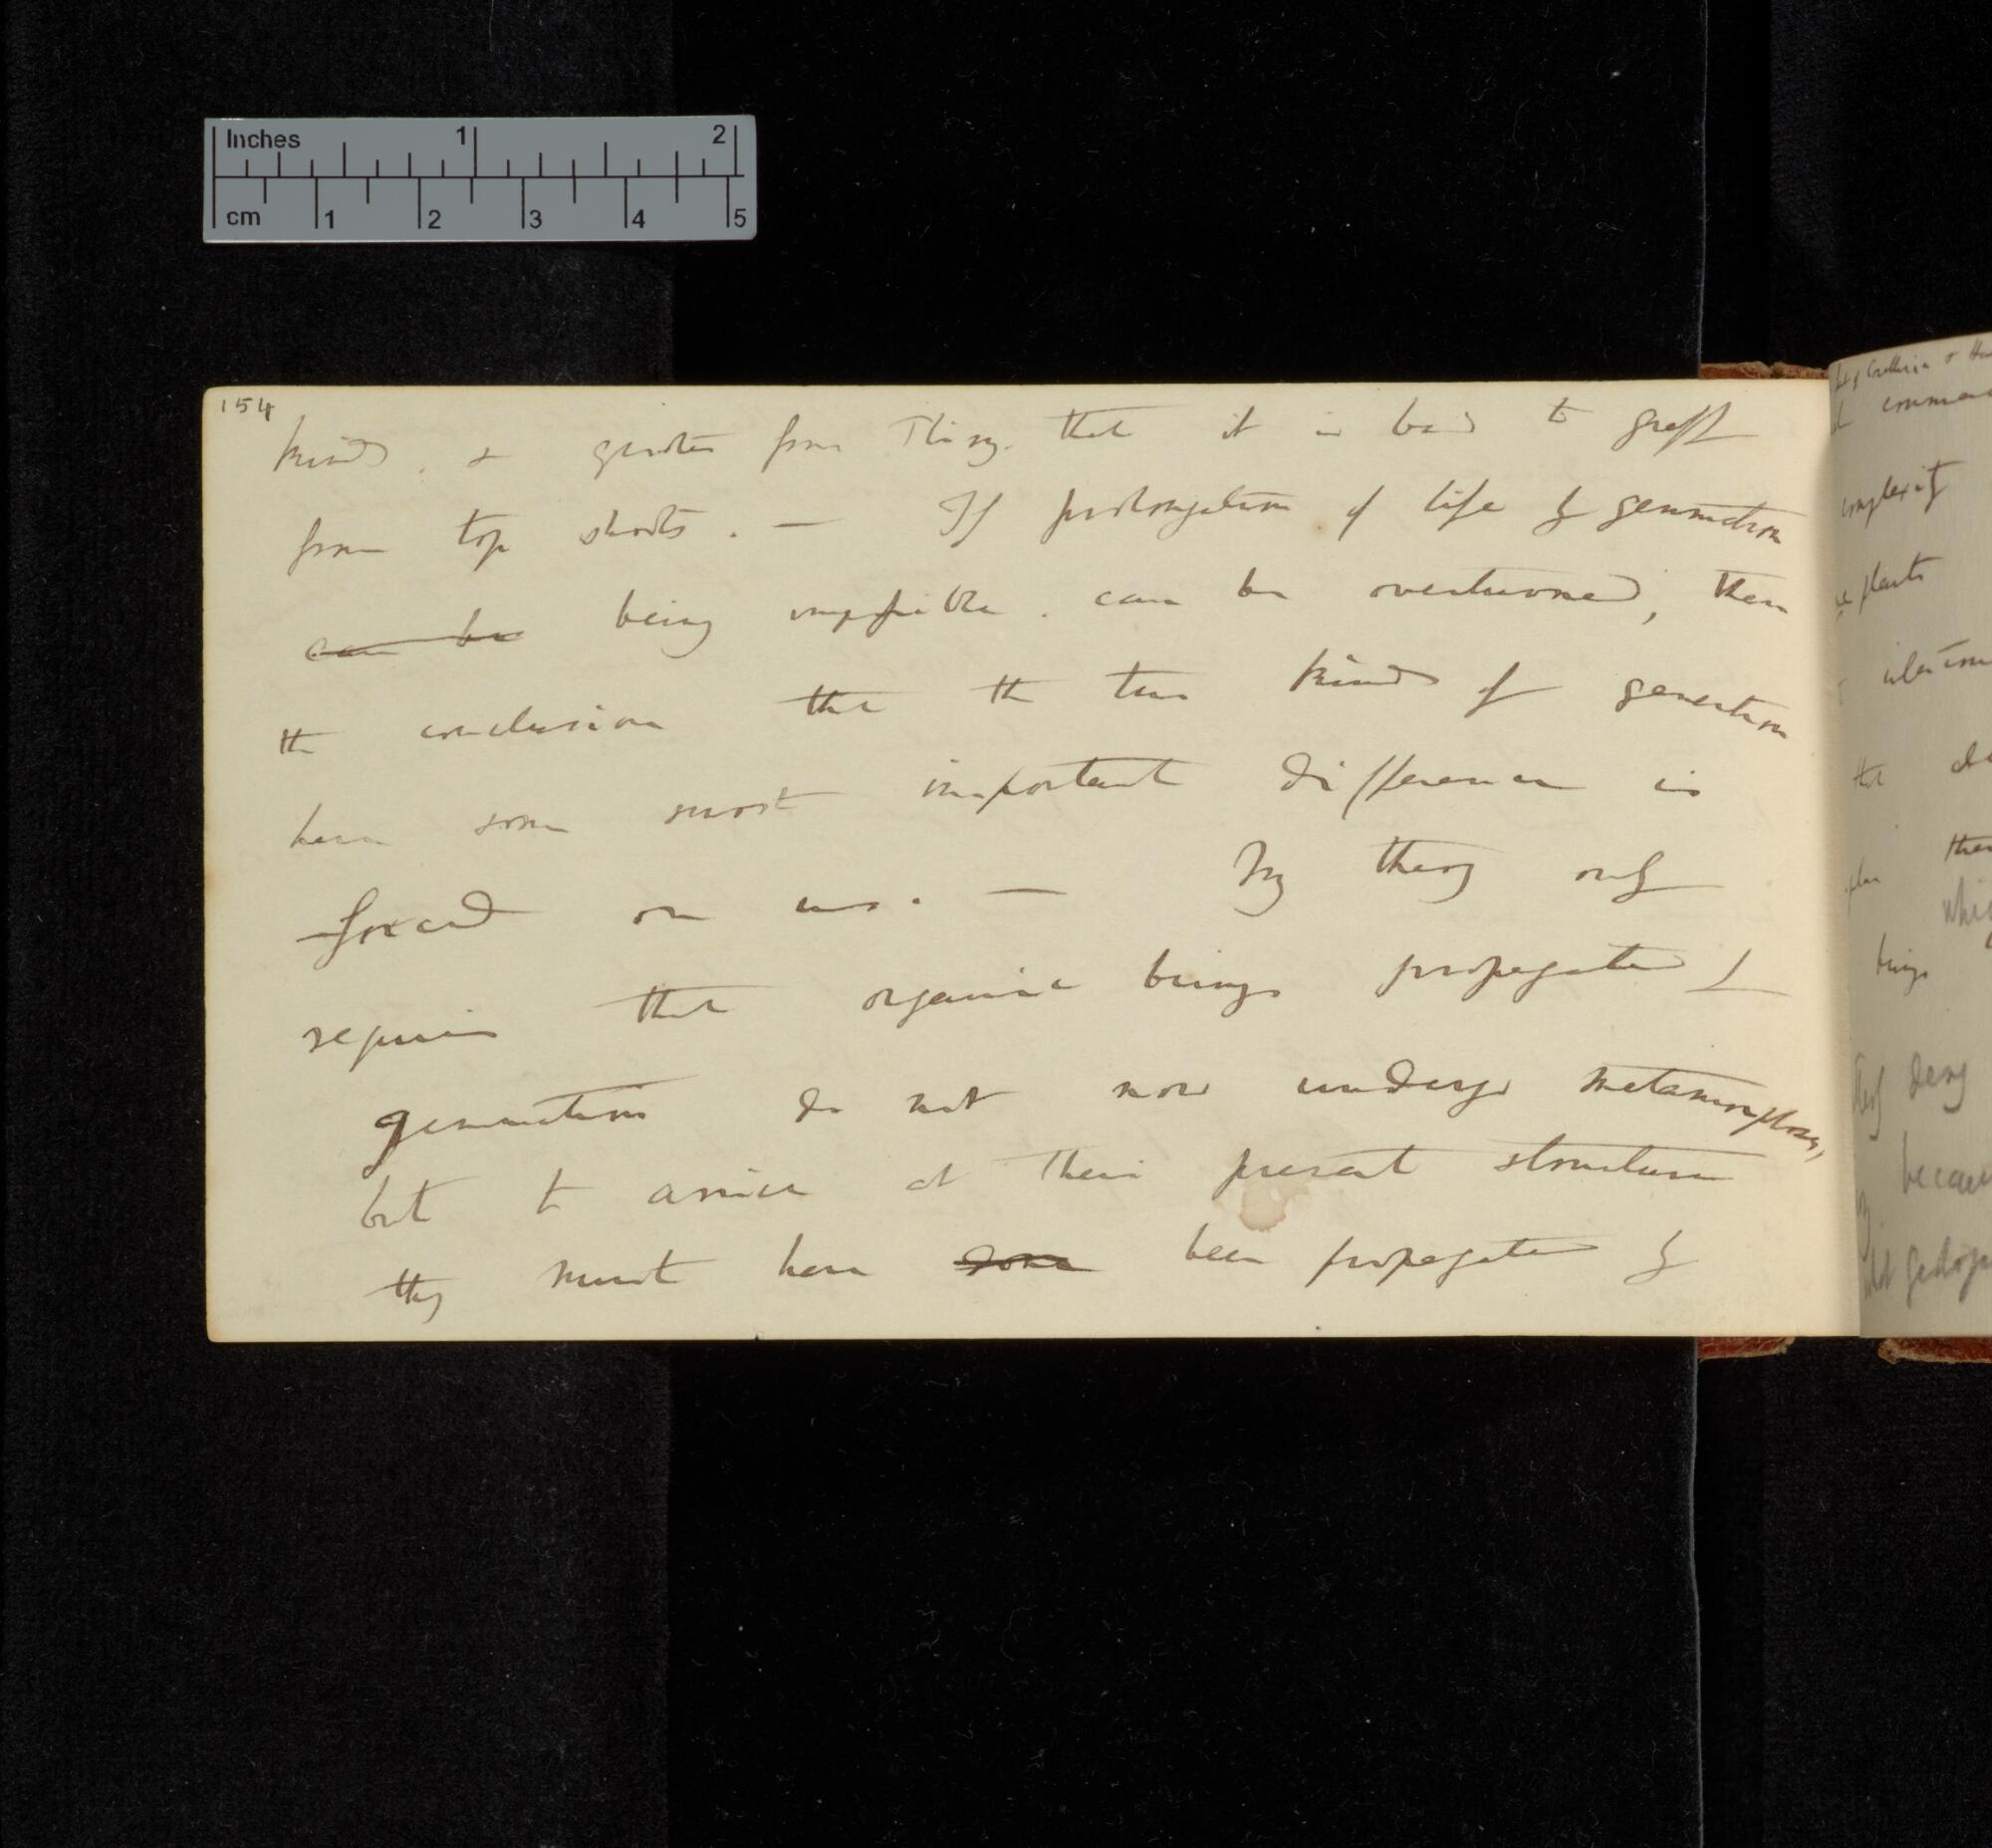 Inches 1 2
cm 1 2 3 4 5
154
kinds. & quotes from Pliny. that it is bad to graft
from top shoots. — If prolongation of life by gemmation
can be being impossible. can be overturned, then
the conclusion that the two kinds of generation
have some most important difference is
forced on us. — My theory only
requires that organic beings propagated by
gemmation do not now undergo metamorphoses,
but to arrive at their present structure
they must have done been propagated by
complexity
plants
that
then
beings
deny